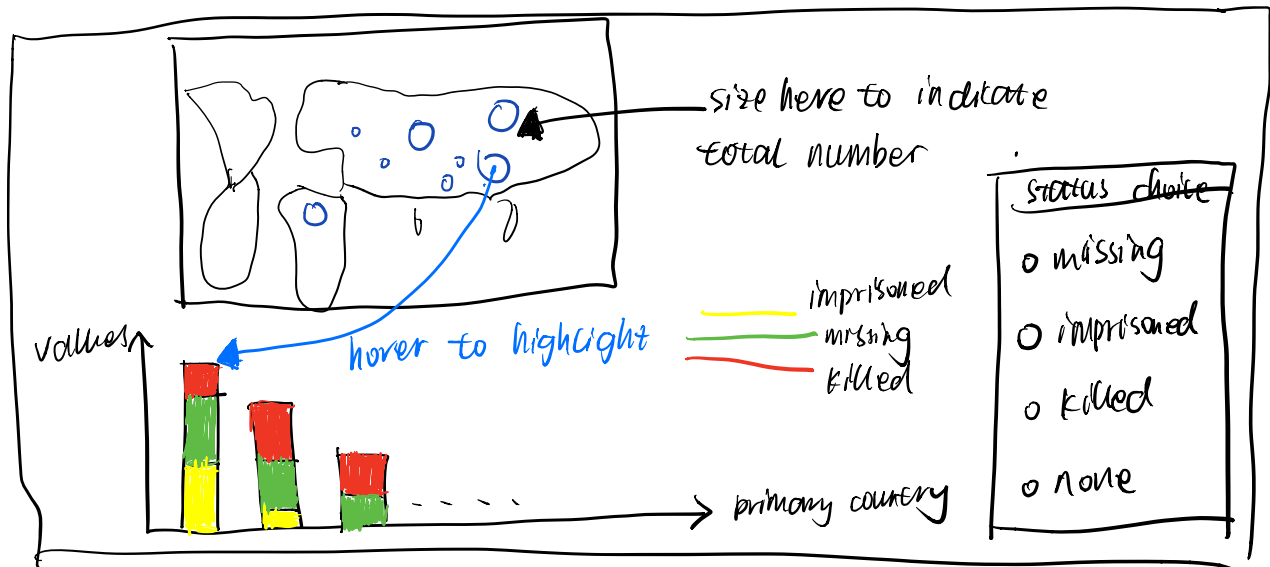 size here to indicate
total number
status choice
missing
imprisoned
killed
none
imprisoned
missing
killed
hover to highlight
values
primary country